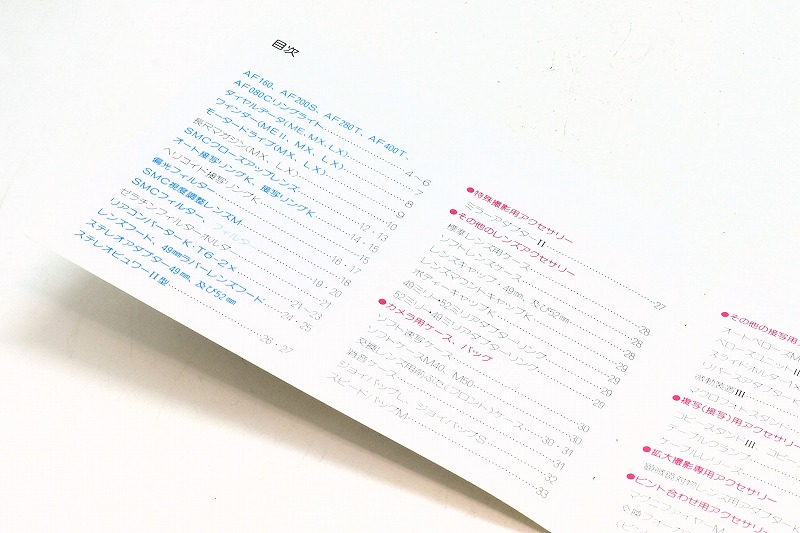 目次
AF160、AF200S、AF280T、AF400T、
AF080Cリングライト 4~6
ダイヤルデータ(ME、MX、LX) 7
ワインダー(MEⅡ、MX、LX) 8
モータードライブ(MX、LX) 9
長尺マガジン(MX、LX) 9
SMCクローズアップレンズ 10
オート接写リングK、接写リングK 12・13
ヘリコイド接写リングK 14・15
偏光フィルター
SMC視度調整レンズM 16・17
SMCフィルター、フィルター
ゼラチンフィルターホルダー
リアコンバーターK・T6-2×
レンズフード、49㎜ラバーレンズフード
ステレオアダプター49㎜、及び52㎜ 24・25
ステレオビュワーⅡ型 26・27
●特殊撮影用アクセサリー
ミラーアダプターⅡ 27
●その他のレンズアクセサリー
標準レンズ用ケース 28
ソフトレンズケース 28
レンズキャップ・49㎜、及び52㎜ 28
レンズマウントキャップK
ボディーキャップK 29
49ミリ・52ミリアダプターリング 29
52ミリ・49ミリアダプターリング 29
●カメラ用ケース、バッグ
ソフト速写ケース
ソフトケースM40、M80 30
交換レンズ用前ぶた(フロント)ケース 30・31
消音ケース 31
ジョイバッグL、ジョイバッグS 32
スピードバッグM 33
●その他の接写用
オートベローズM
ベローズユニットⅡ
スライドホルダー1×
リバースアダプターK
Ⅲ
マクロフォトスタンド
●複写(接写)用アクセサリー
コピースタンドⅢ コピー
テーブルクランプ
ケーブルレリーズ
●拡大撮影専用アクセサリー
顕微鏡対物レンズ用アダプターK
●ピント合わせ用アクセサリー
マグニファイヤーM